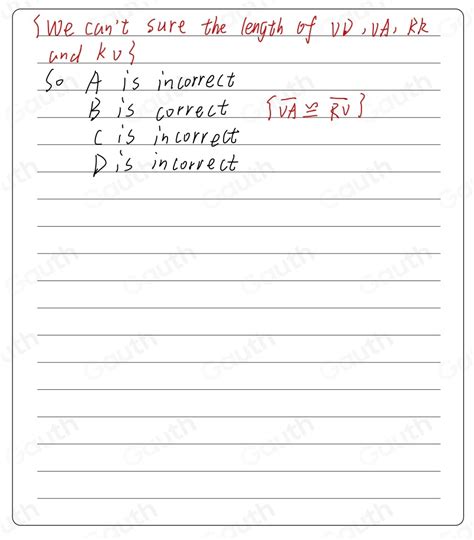 {We can't sure the length of VD, VA, RK
and KV}
So A is incorrect
B is correct {V̅A̅ ≅ R̅V̅}
C is incorrect
D is incorrect